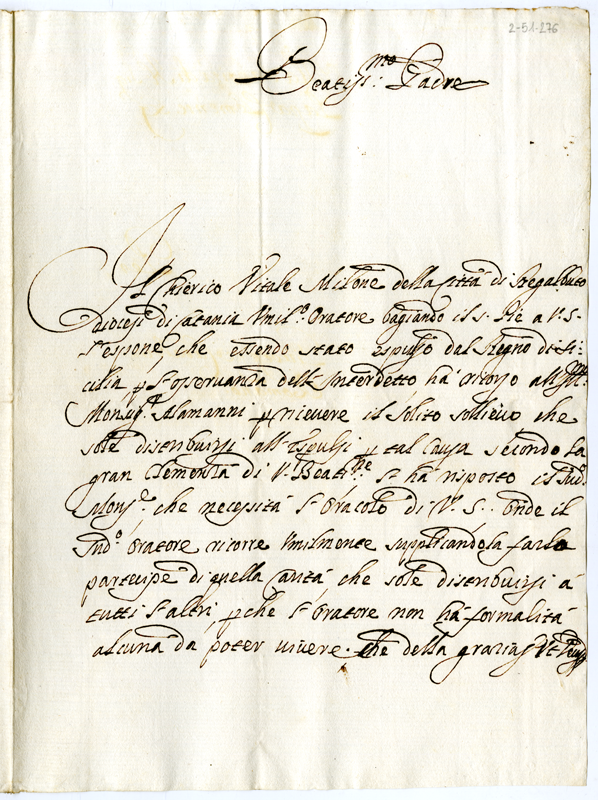 2-51-276
Beatiss:mo Padre
Il Chierico Vitale Milone della Città di Regalbuto
Diocesi di Catania Vmil.o Oratore bagiando il S. Piè a V. S.
l'espone, che essendo stato espulso dal Regno di Si:
cilia p l'osservanza dell'Interdetto hà ricorso all'Ill:
Monsig.r Alamanni p ricevere il solito sollievo che
sole distribuirsi all'espulsi p tal causa secondo la
gran clementia di V. Beatit.ne l'hà risposto il Sud.o
Mons.r che necessita l'oracolo di V. S.. onde il
Sud.o Oratore ricorre Vmilmente supplicandola farlo
partecipe di quella carità che sole distribuirsi à
tutti l'altri, p che l'Oratore non hà formalità
alcuna da poter vivere. Che della grazia Vt Deus